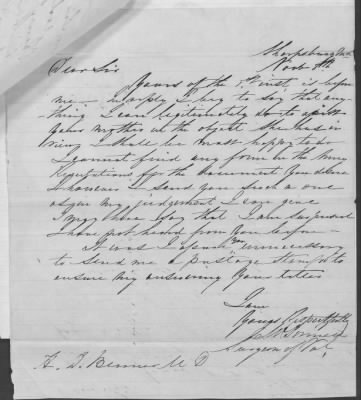 Sharpsburg
Novb 9th
Dear Sir
Yours of the 1st inst, is before
me - in reply I beg to say that any-
thing I can legitimately do to assist
your mother in the object she has in
view I shall be most happy to do
I cannot find any form in the Army
Regulations for the document you desire
I however send you such a one
as in my judgement I can give
I may here say that I am surprised
I have not heard from you before -
It was I assure you unnecessary
to send me a postage stamp to
ensure my answering your letter
I am
Yours Respectfully
Surgeon of Vol,
M D